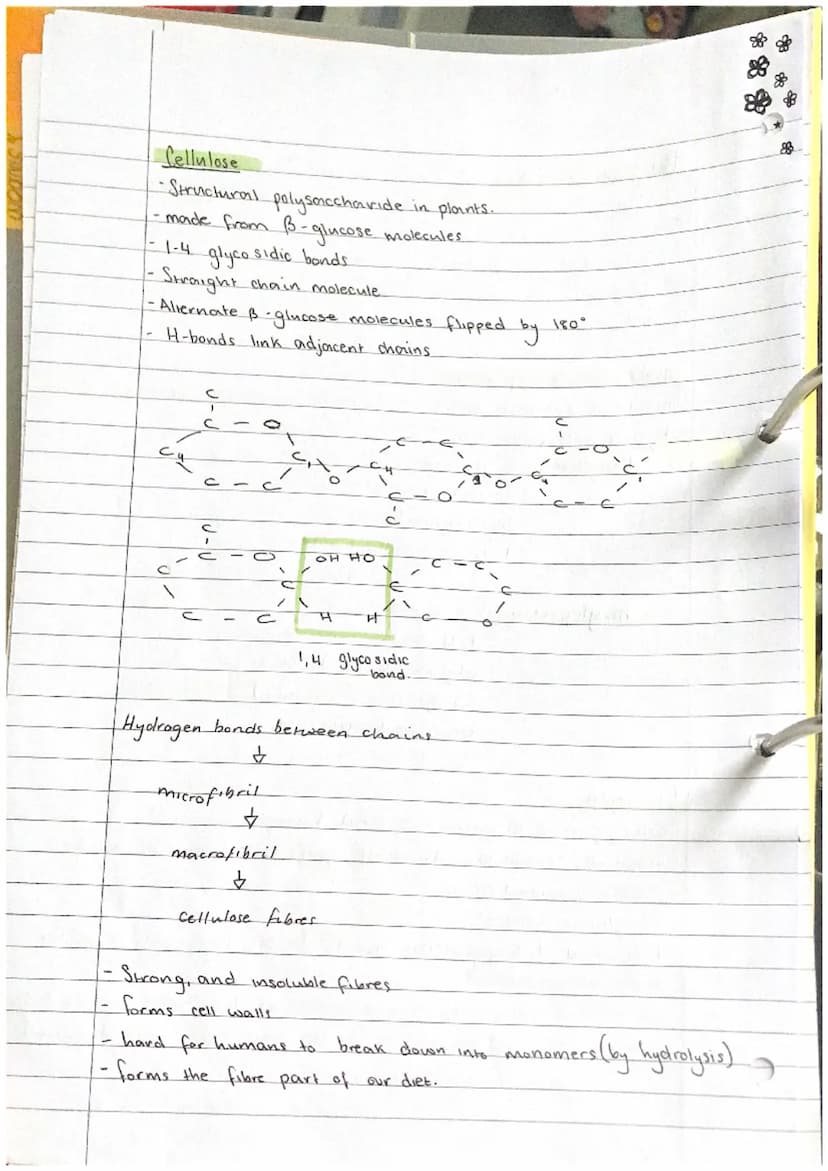 Cellulose
- Structural polysaccharide in plants.
- made from β-glucose molecules
- 1-4 glycosidic bonds
- Straight chain molecule
- Alternate β-glucose molecules flipped by 180°
- H-bonds link adjacent chains
C C
C - O C - C C - O
C4 C1 O C4 C1 O C4 C1
C - C C - O C - C
C
C
C - O OH HO C - C
C C C C
C - C H H C - O
1,4 glycosidic
bond.
Hydrogen bonds between chains
microfibril
macrofibril
cellulose fibres
- Strong, and insoluble fibres
- forms cell walls
- hard for humans to break down into monomers (by hydrolysis)
- forms the fibre part of our diet.